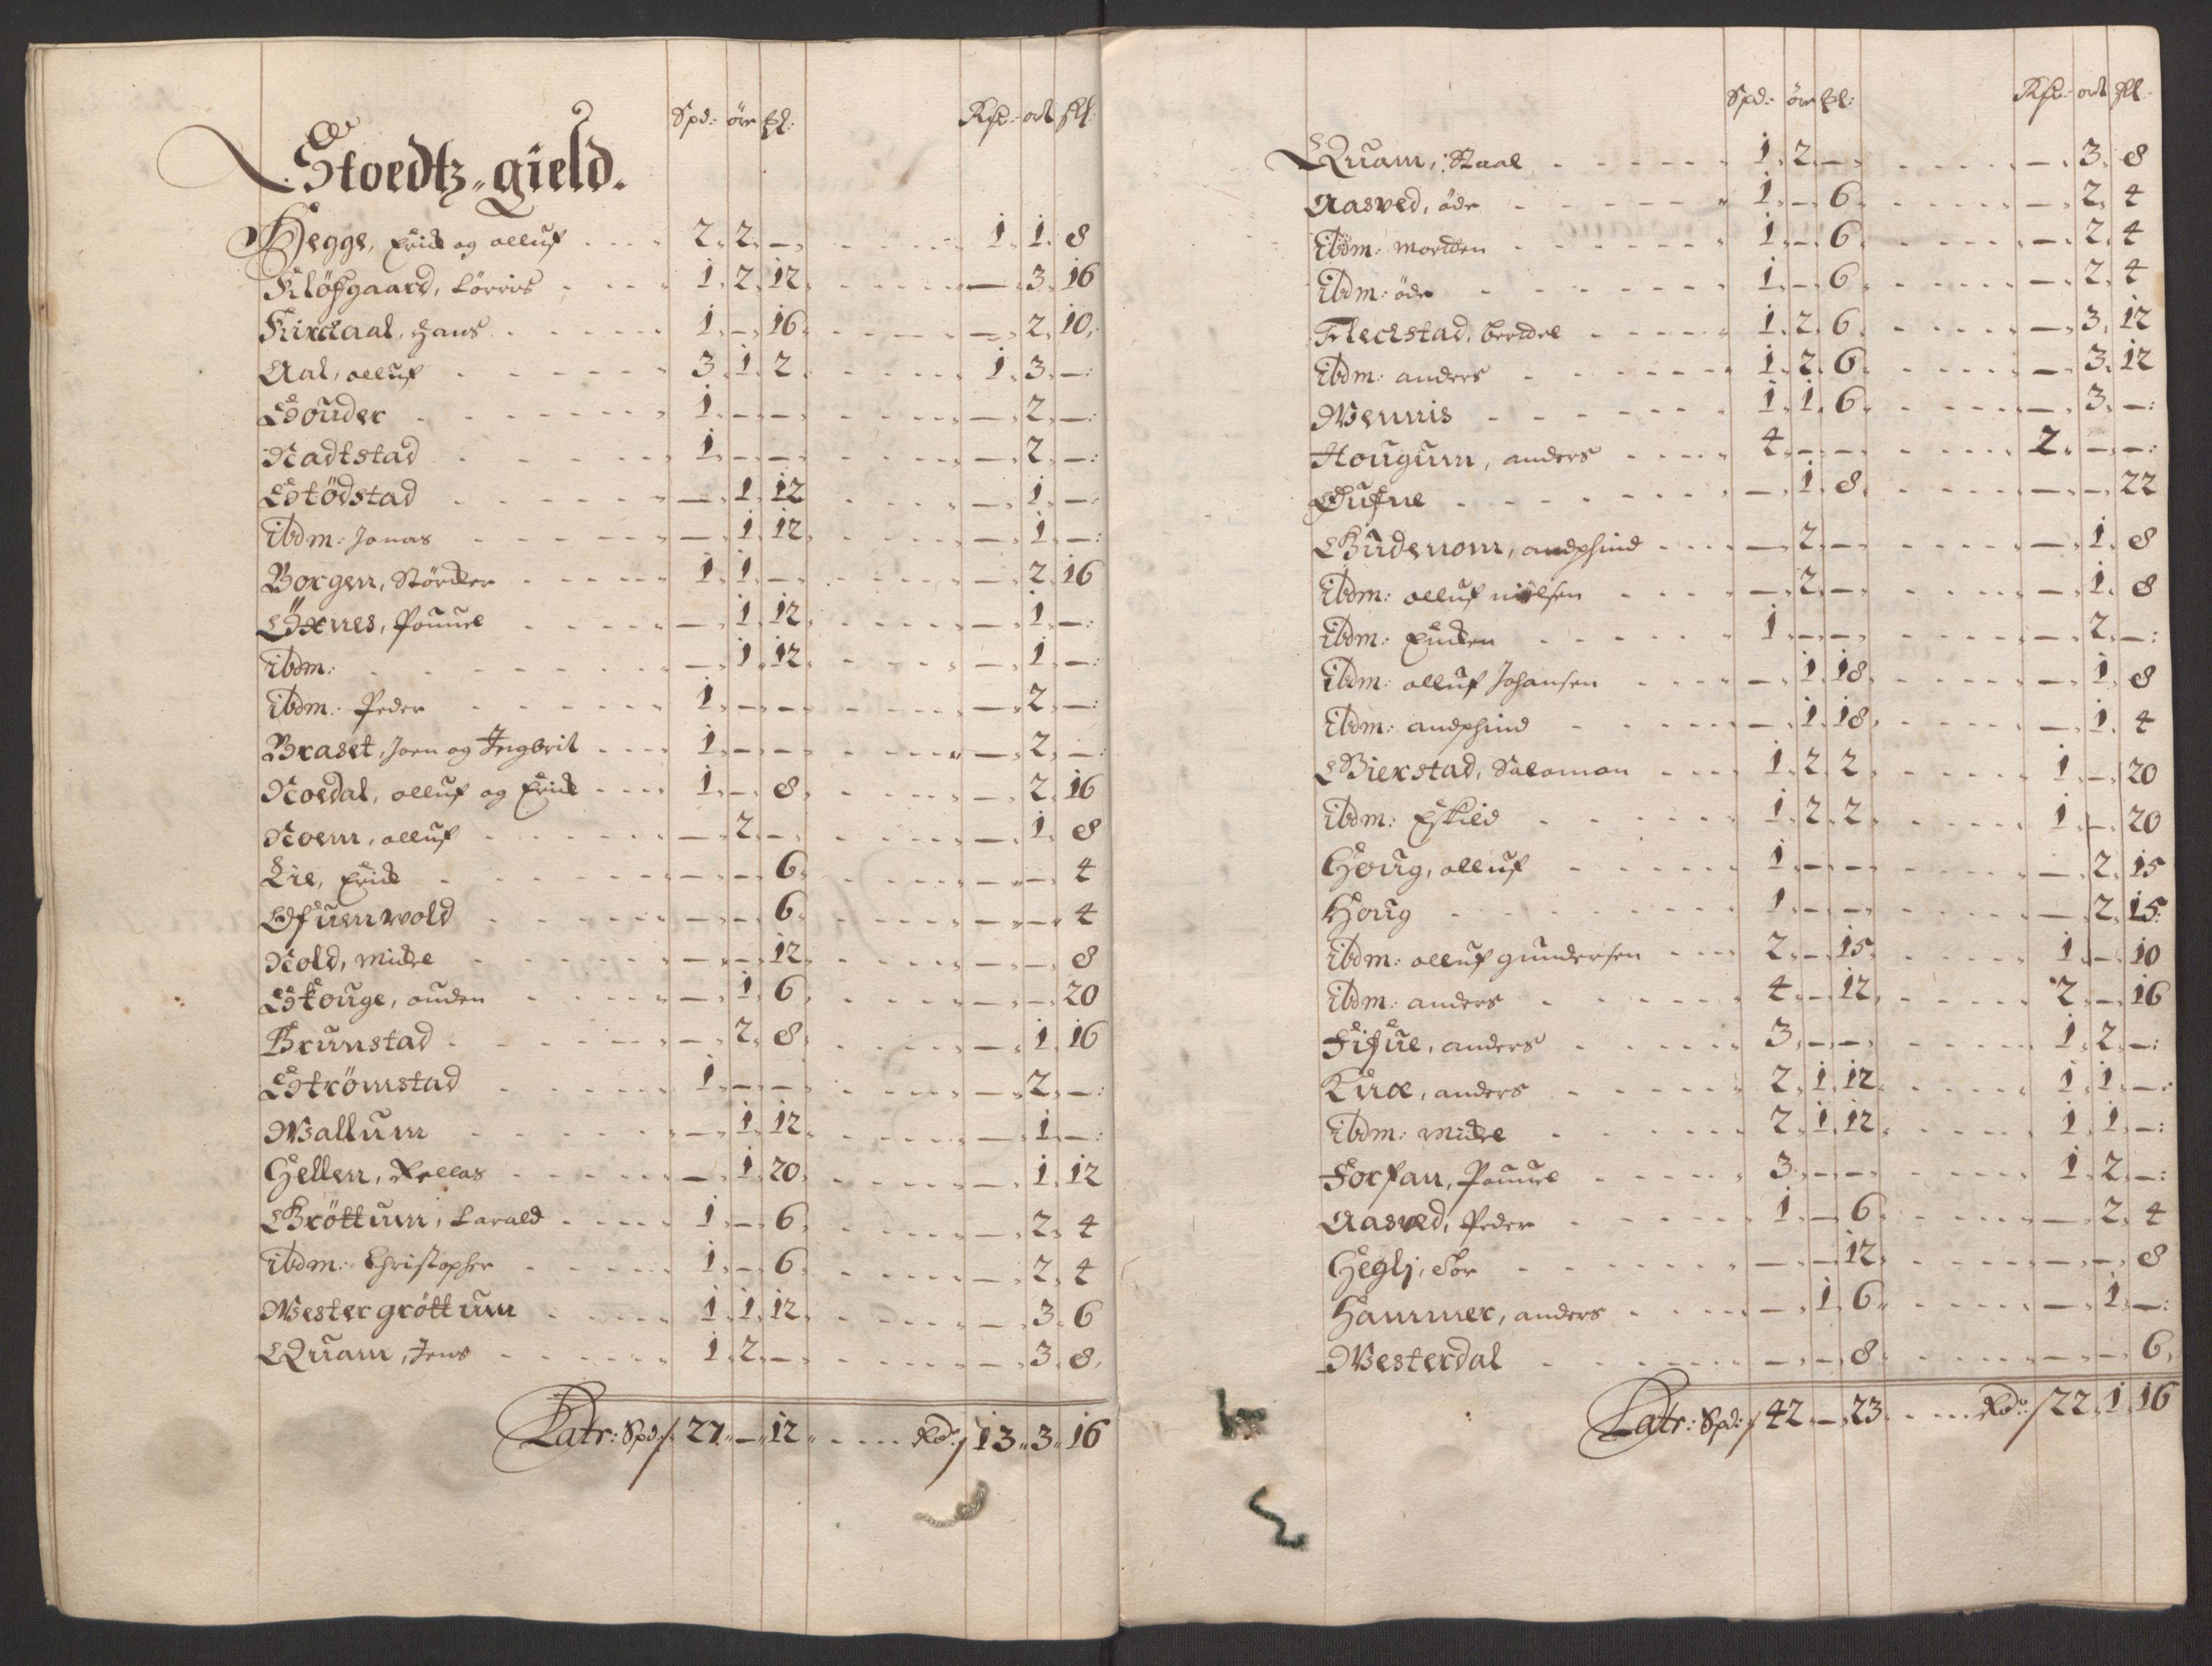 Spd: ör pl: Rdl: ort sk:
Stoedtz-gield.
Hegge, Erich og olluf 2. 2. — 1. 1. 8
Klöfgaard, Lorris 1. 2. 12 — 3. 16
Kirckaal, Hans 1. — 16 — 2. 10
Aal, olluf 3. 1. 2 1. 3. —
Souder 1. — — — 2. —
Nadtstad 1. — — — 2. —
Stödstad — 1. 12 — 1. —
ibdm: Jonas — 1. 12 — 1. —
Borgen, Störcker 1. 1. — — 2. 16
Öxnes, Pouuel — 1. 12 — 1. —
ibdm: — 1. 12 — 1. —
ibdm: Peder 1. — — — 2. —
Braset, Joen og Ingbrit 1. — — — 2. —
Noedal, olluf og Erich 1. — 8 — 2. 16
Noem, olluf — 2. — — 1. 8
Lie, Erich — — 6 — — 4
Ofuenwold — — 6 — — 4
Nold, Michel — — 12 — — 8
Skouge, ouden — 1. 6 — — 20
Brunstad — 2. 8 — 1. 16
Strömstad 1. — — — 2. —
Wallum — 1. 12 — 1. —
Hellem, Pellas — 1. 20 — 1. 12
Gröttum, Harald 1. — 6 — 2. 4
ibdm: Christopher 1. — 6 — 2. 4
Westergröttum 1. 1. 12 — 3. 6
Quam, Jens 1. 2. — — 3. 8
Latr: Spd: 27 — 12 Rdr: 13. 3. 16
Spd: ör pl: Rdl: ort sk:
Quam, Staal 1. 2. — — 3. 8
Aasved, öde 1. — 6 — 2. 4
ibdm: Mortten 1. — 6 — 2. 4
ibdm: öde 1. — 6 — 2. 4
Fleckstad, Berttel 1. 2. 6 — 3. 12
ibdm: anders 1. 2. 6 — 3. 12
Wennis 1. 1. 6 — 3. —
Hougum, anders 4. — — 2. — —
Dufue — 1. 8 — — 22
Gudenom, andphind — 2. — — 1. 8
ibdm: olluf nielsen — 2. — — 1. 8
ibdm: 1. — — — 2. —
ibdm: olluf Johansen — 1. 18 — 1. 8
ibdm: andphind — 1. 18 — 1. 4
Bierstad, Salomon 1. 2. 2 1. — 20
ibdm: Eskild 1. 2. 2 1. — 20
Houg, olluf 1. — — — 2. 15
Houg 1. — — — 2. 15
ibdm: olluf gundersen 2. — 15 1. — 10
ibdm: anders 4. — 12 2. — 16
Fifue, anders 3. — — 1. 2. —
Lræ, anders 2. 1. 12 1. 1. —
ibdm: Michel 2. 1. 12 1. 1. —
Forfan, Pouuel 3. — — 1. 2. —
Aasved, Peder 1. — 6 — 2. 4
Heglj, Tor — — 12 — — 8
Hammer, anders — 1. 6 — 1. —
Westerdal — — 8 — — 6
Latr: Spd: 42 — 23 Rdr: 22. 1. 16